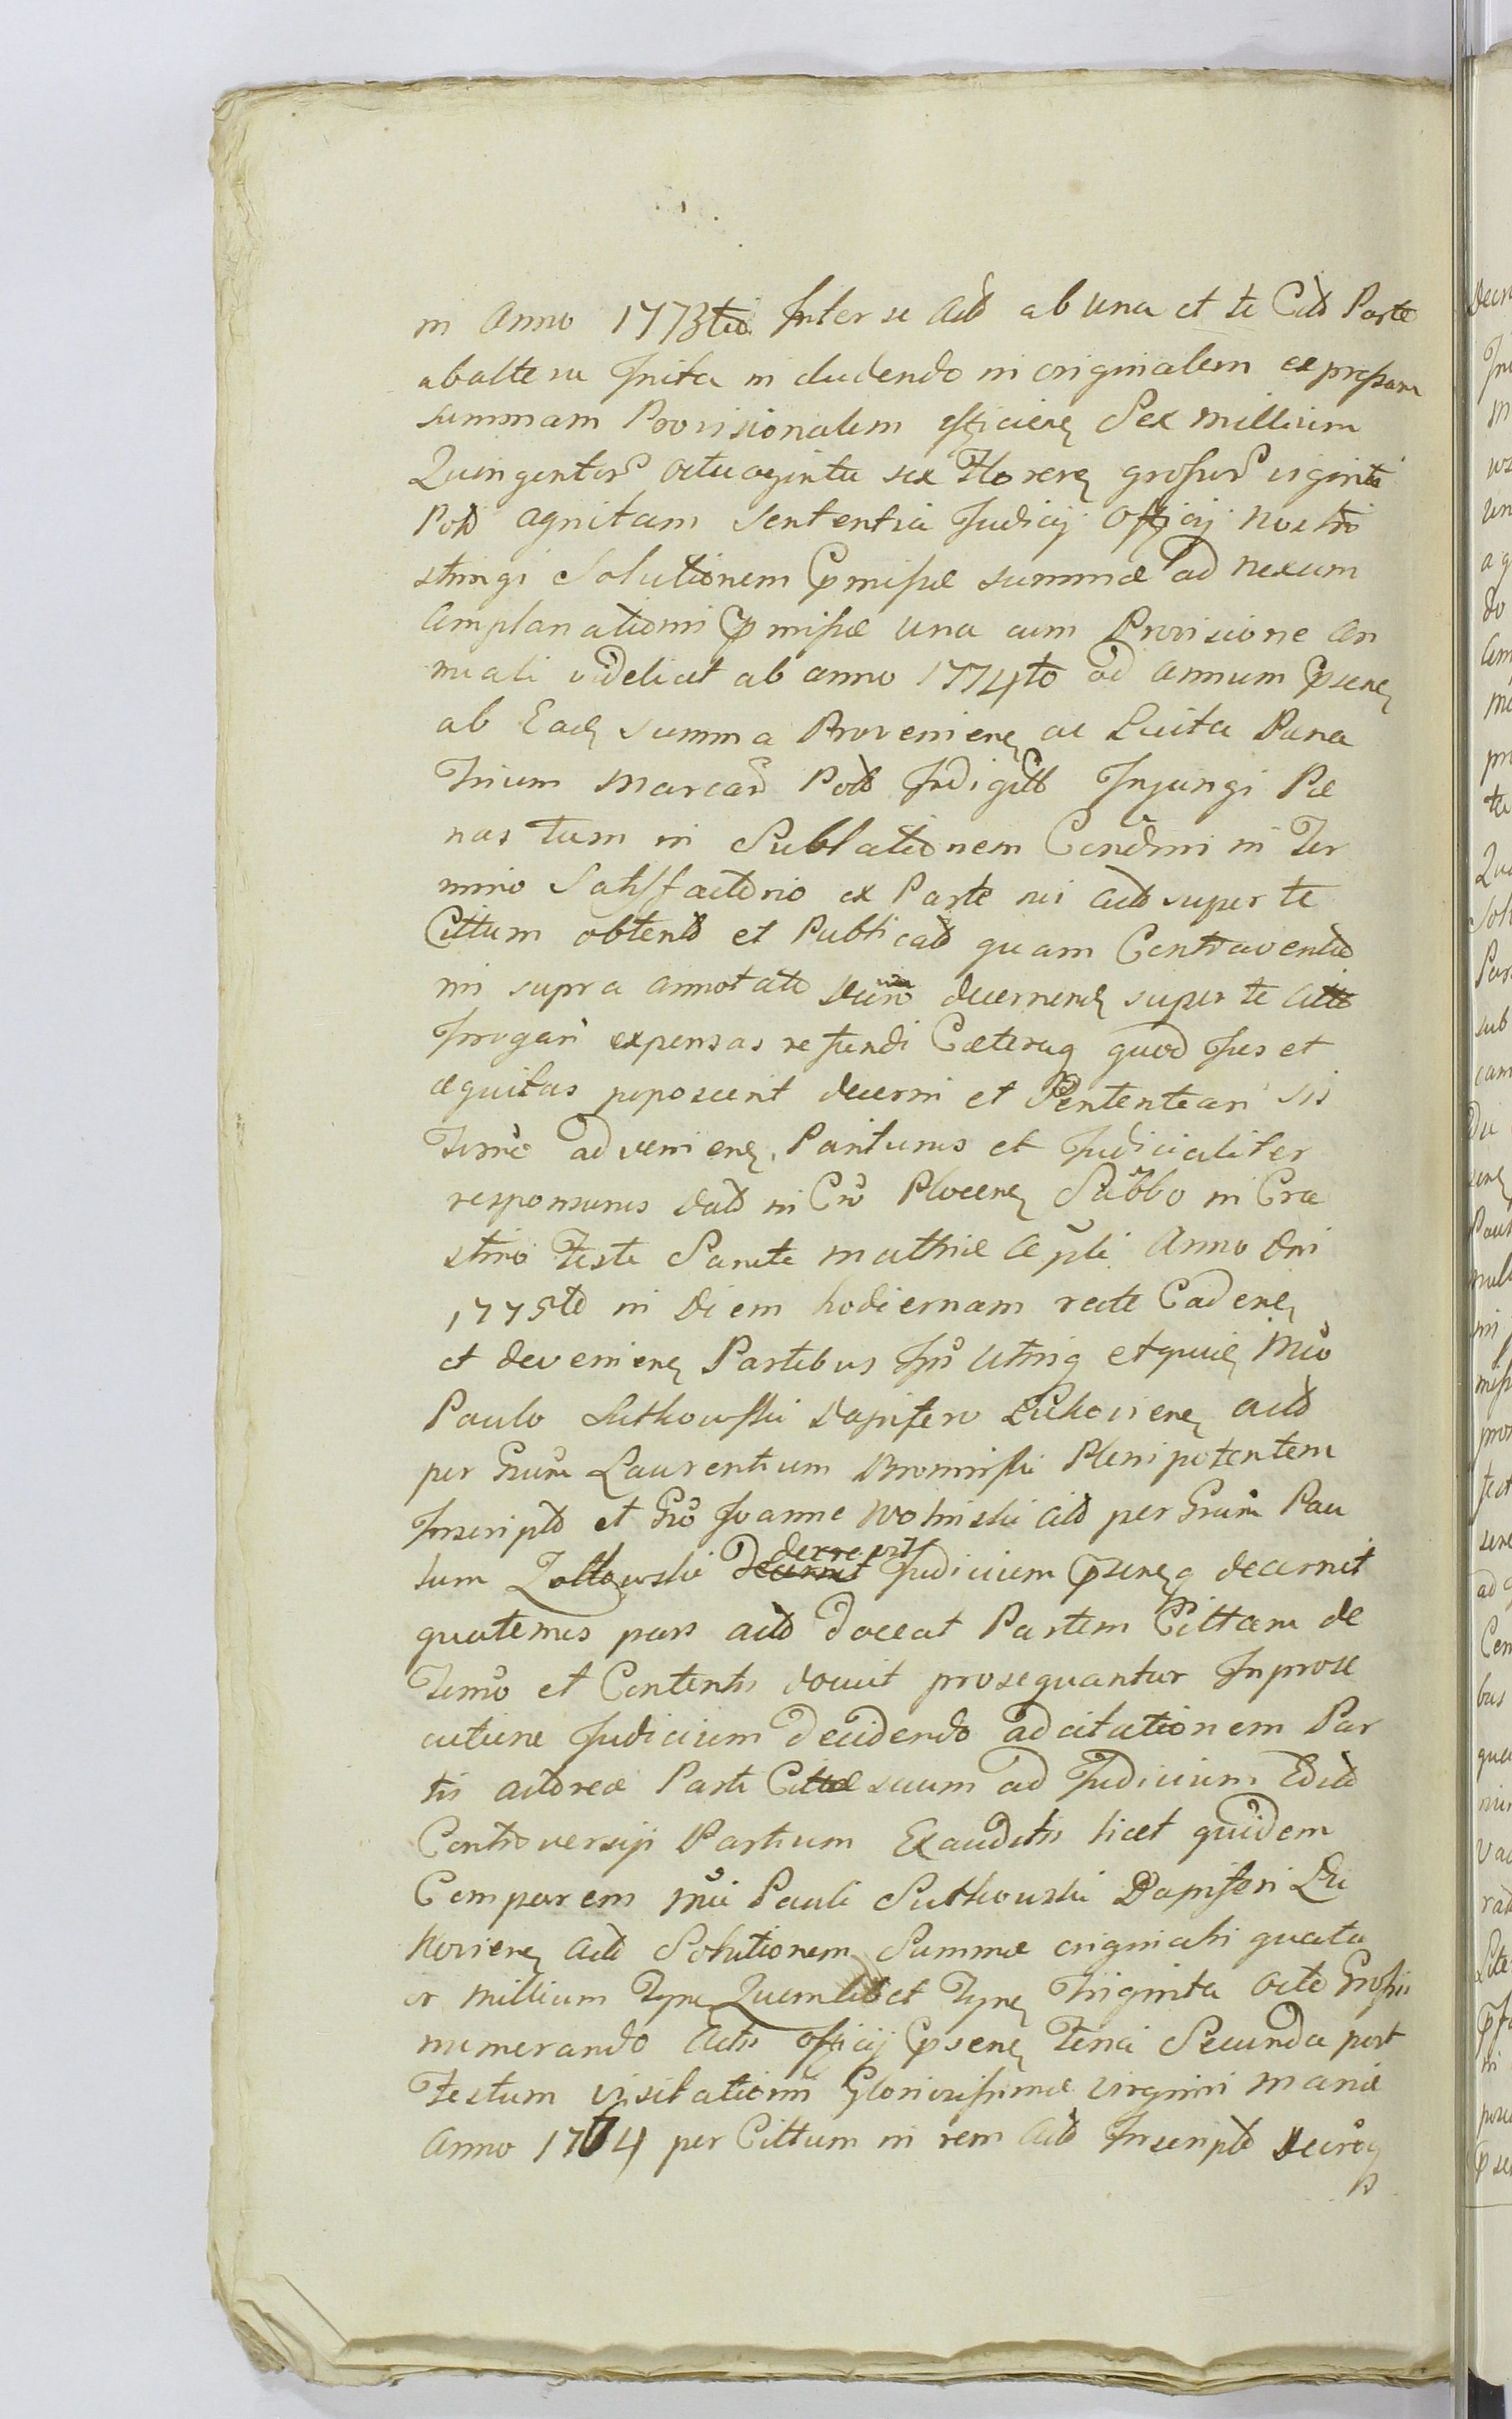 in Anno 1773tio Inter se Actõ ab una et te Cttõ Parte
ab altera Inita in cludendo in originalem expressam
summam Provisionalem efficien Sex millium
Quingentor octuaginta sex Floren grossor viginti
Post agnitam Sententia Judicij Officij nostri
stringi Solutionem pmissæ summæ ad nexum
Complanationis pmissæ una cum Provisione An
nuali videlicet ab anno 1774to ad annum psen
ab Ead summa Provenien ac Luita Pana
Trium Marcar Injungi Pæ
nas tum in Sublationem Condmni in Ter
mino Satisfactorio ex Parte sui Actõ super te
Cittum obtent et Publicat quam Contraventio
ni supra annotato decernend super te
Irrogari expensas refundi Cæteraq quod Jus et
æquitas poposcerit decerni et Sententiari sis
Termino advenien Pariturus et Judicialiter
responsurus Dat in Cro Plocen Sabbo in Cra
stino Festi Sancti Mathiæ Apli Anno Dni
1775to in Diem hodiernam recte Caden
et devenien Partibus Ipis Utrisq et quid Mco
Paulo Sutkowski Dapifero Lukovien Actõ
per Grum Laurentium Plenipotentem
Inscript et Gro Joanne Wolinski Cit per Grum Pau
lum Zoltowski Judicium psens decernit
quatenus pars Actõ doceat Partem Cittam de
Termo et Contentis docuit prosequantur In prose
cutione Judicium decidendo ad citationem Par
tis Actoreæ Parti Cittæ suum ad Judicium Edito
Controversijs Partium Exauditis licet quidem
Comparem Mci Pauli Sutkowski Dapiferi Lu
kovien Actõ Solutionem Summæ originalis quatu
or millium Tynf Quemlibet Tynf Triginta octo Grossis
numerando Actis Officij psen Feria Secunda post
Festum Visitationis Gloriosissimæ Virginis Mariæ
Anno 1764 per Cittum in rem Actõ Inscript